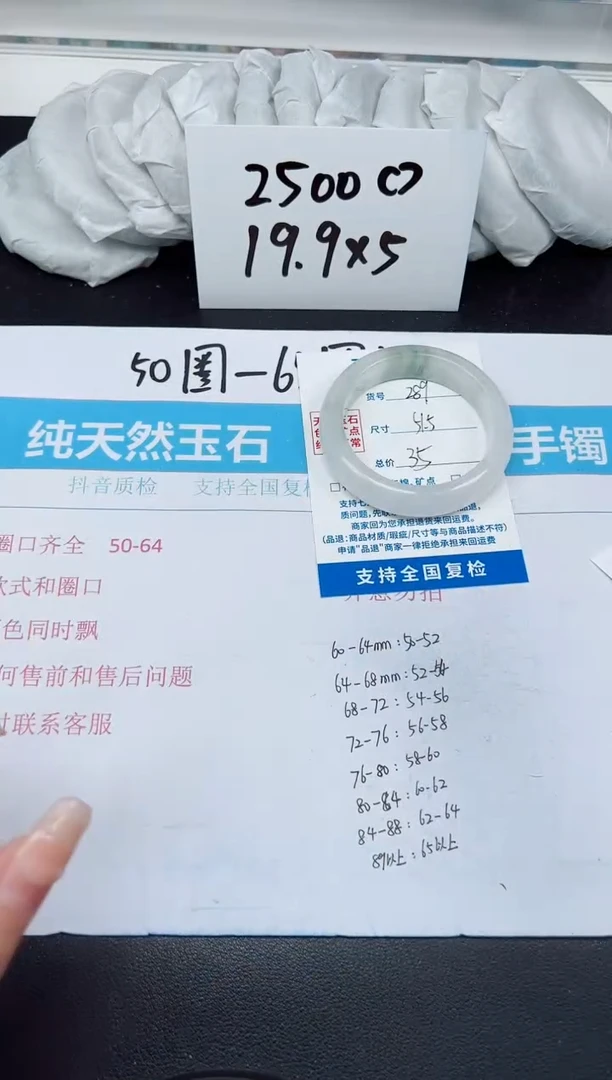 2500 C
19.9×5
50圈—6
纯天然玉石
手镯
抖音质检 支持全国复检
货号 289
尺寸 51.5
总价 35
质问题,先
商家回为您承担退货来回运费。
(品退:商品材质/瑕疵/尺寸等与商品描述不符)
申请"品退"商家一律拒绝承担来回运费
支持全国复检
圈口齐全 50-64
款式和圈口
色同时飘
何售前和售后问题
时联系客服
60-64mm:50-52
64-68mm:52-54
68-72:54-56
72-76:56-58
76-80:58-60
80-84:60-62
84-88:62-64
89以上:65以上